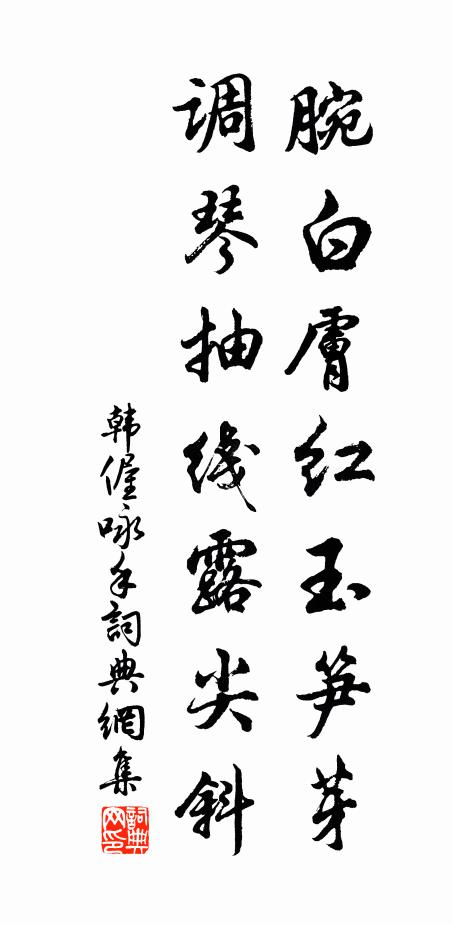 腕白膚红玉笋芽
调琴抽线露尖斜
韩偓咏手詞典網集
詞典网印